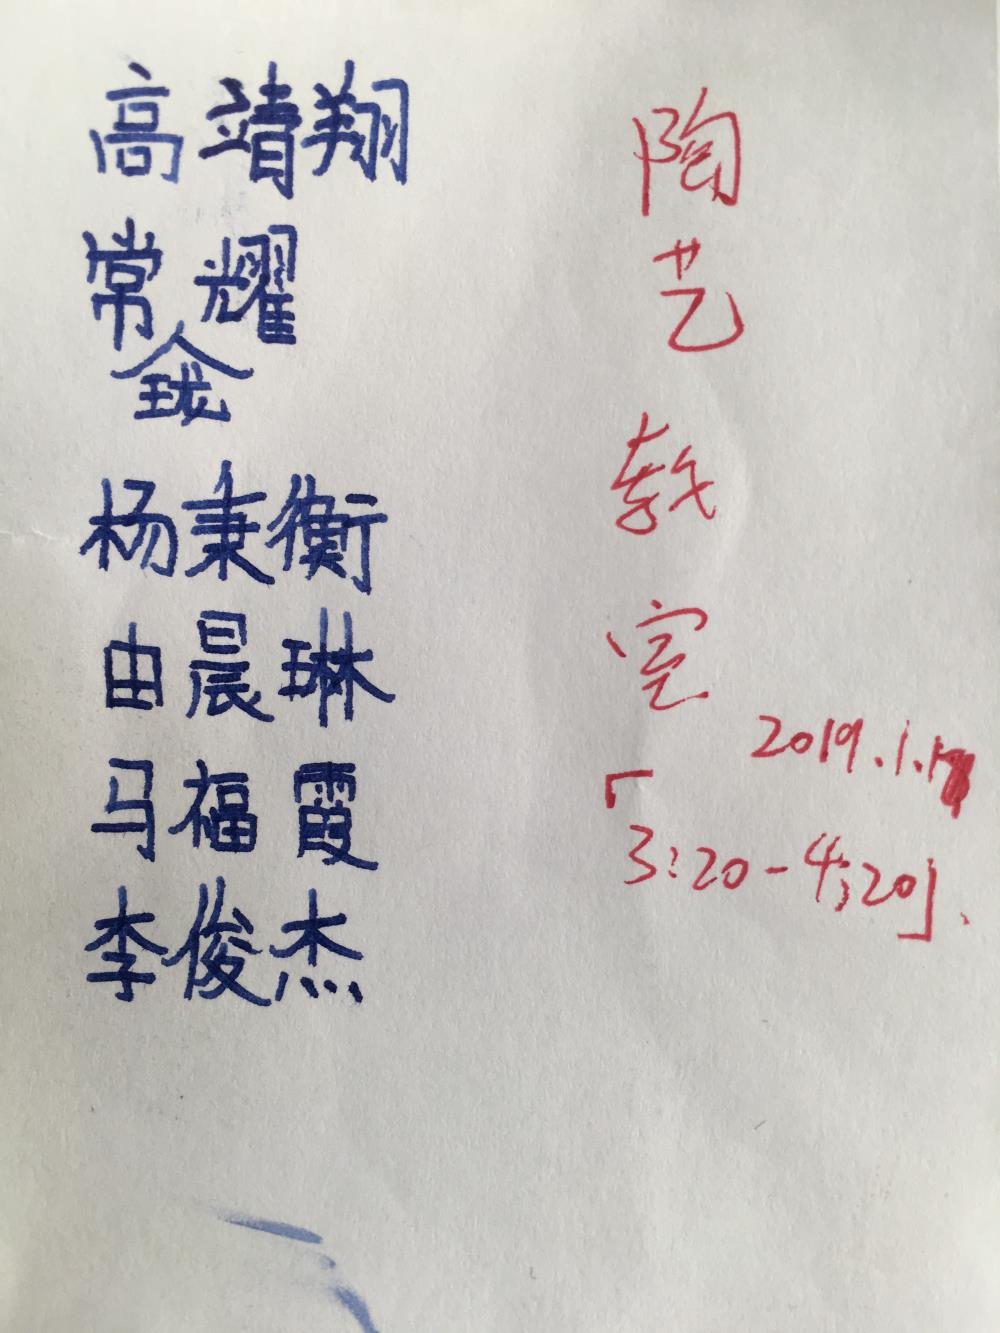 高靖翔
常耀
杨秉衡
由晨琳
马福霞
李俊杰
陶艺教室
2019.1.1
「3:20-4:20」.